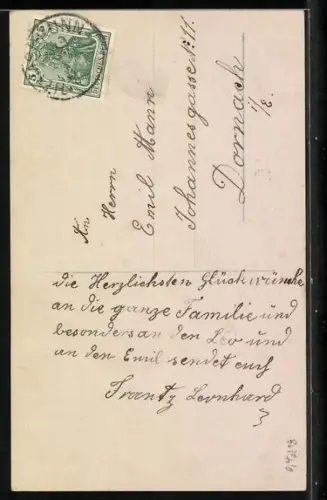 An Herrn
Emil Mann
Johannesgasse Nr. 11.
Dornach
i/E.
die Herzlichsten Glückwünsche
an die ganze Familie und
besonders an den Leo und
an den Emil sendet euch
Frantz Leonhard
5